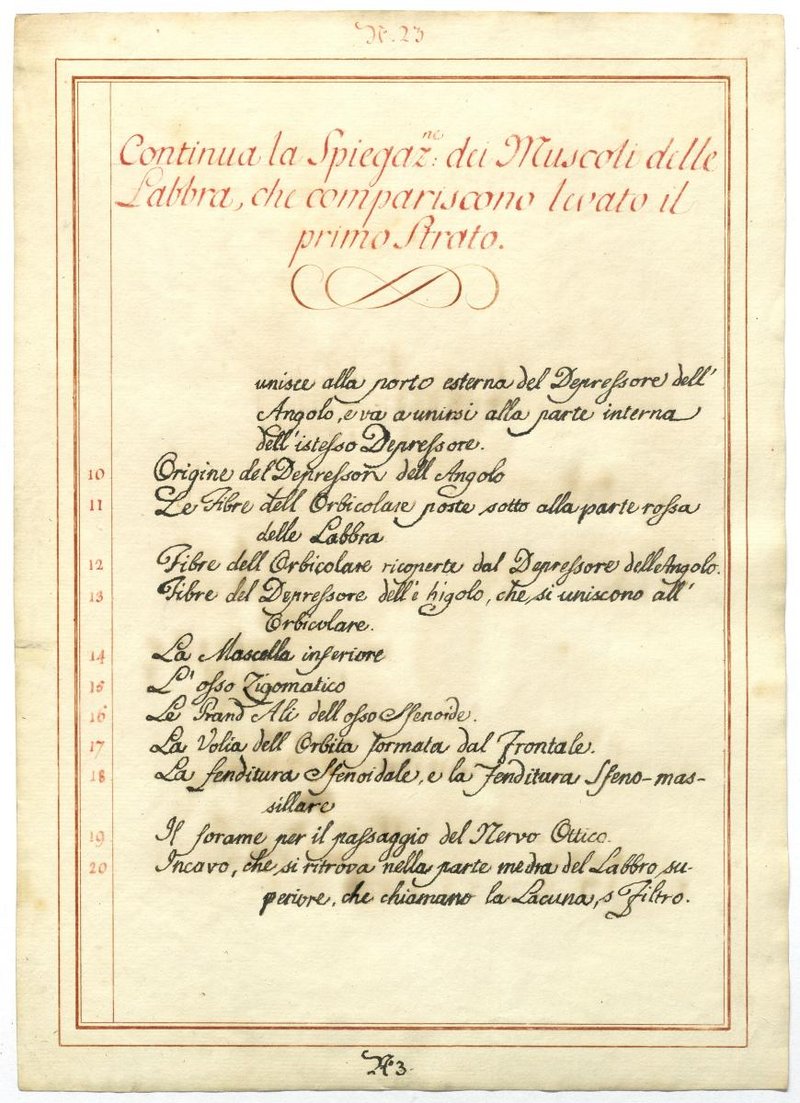 N. 23
Continua la Spiegaz.ne: dei Muscoli delle
Labbra, che compariscono levato il
primo Strato.
unisce alla parte esterna del Depressore dell'
Angolo, e va a unirsi alla parte interna
dell'istesso Depressore.
10 Origine del Depressor dell Angolo
11 Le Fibre dell Orbicolare poste sotto alla parte rossa
delle Labbra
12 Fibre dell Orbicolare ricoperte dal Depressore delle Angolo.
13 Fibre del Depressore che si uniscono all'
Orbicolare.
14 La Mascella inferiore
15 L'osso Zigomatico
16 Le Grand Ali dell osso Sfenoide.
17 La Volta dell Orbita formata dal Frontale.
18 La fenditura Sfenoidale, e la Fenditura Sfeno-mas-
sillare
19 Il forame per il passaggio del Nervo Ottico.
20 Incavo, che si ritrova nella parte media del Labbro su-
periore, che chiamano la Lacuna, o Filtro.
N.º 3.